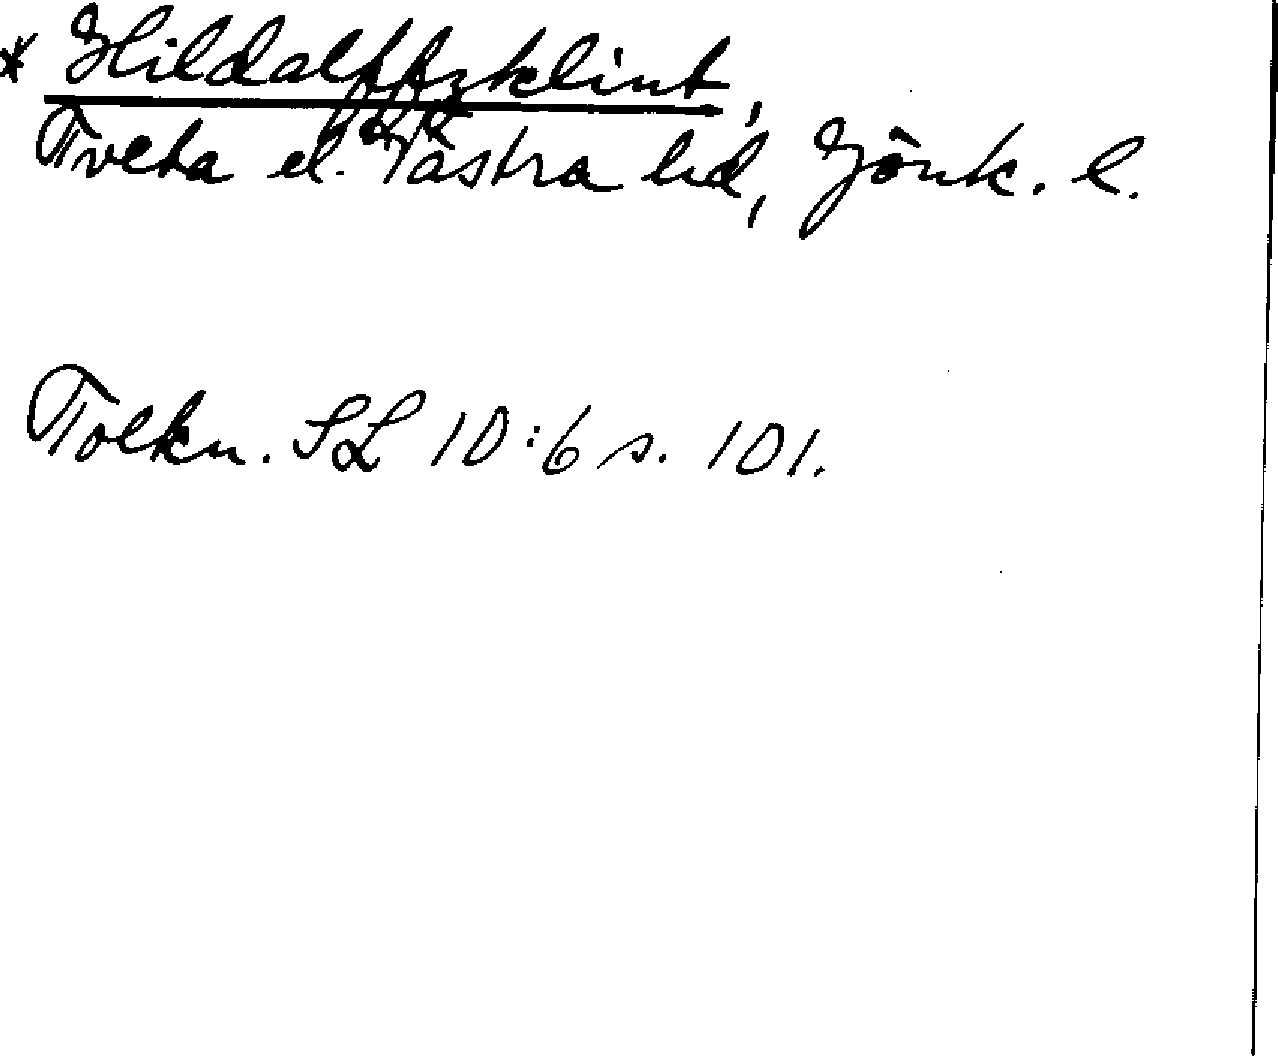 * Hildalffzklint,
Tveta el. Västra hd, Jönk. l.
Tolkn. SL 10:6 s. 101.